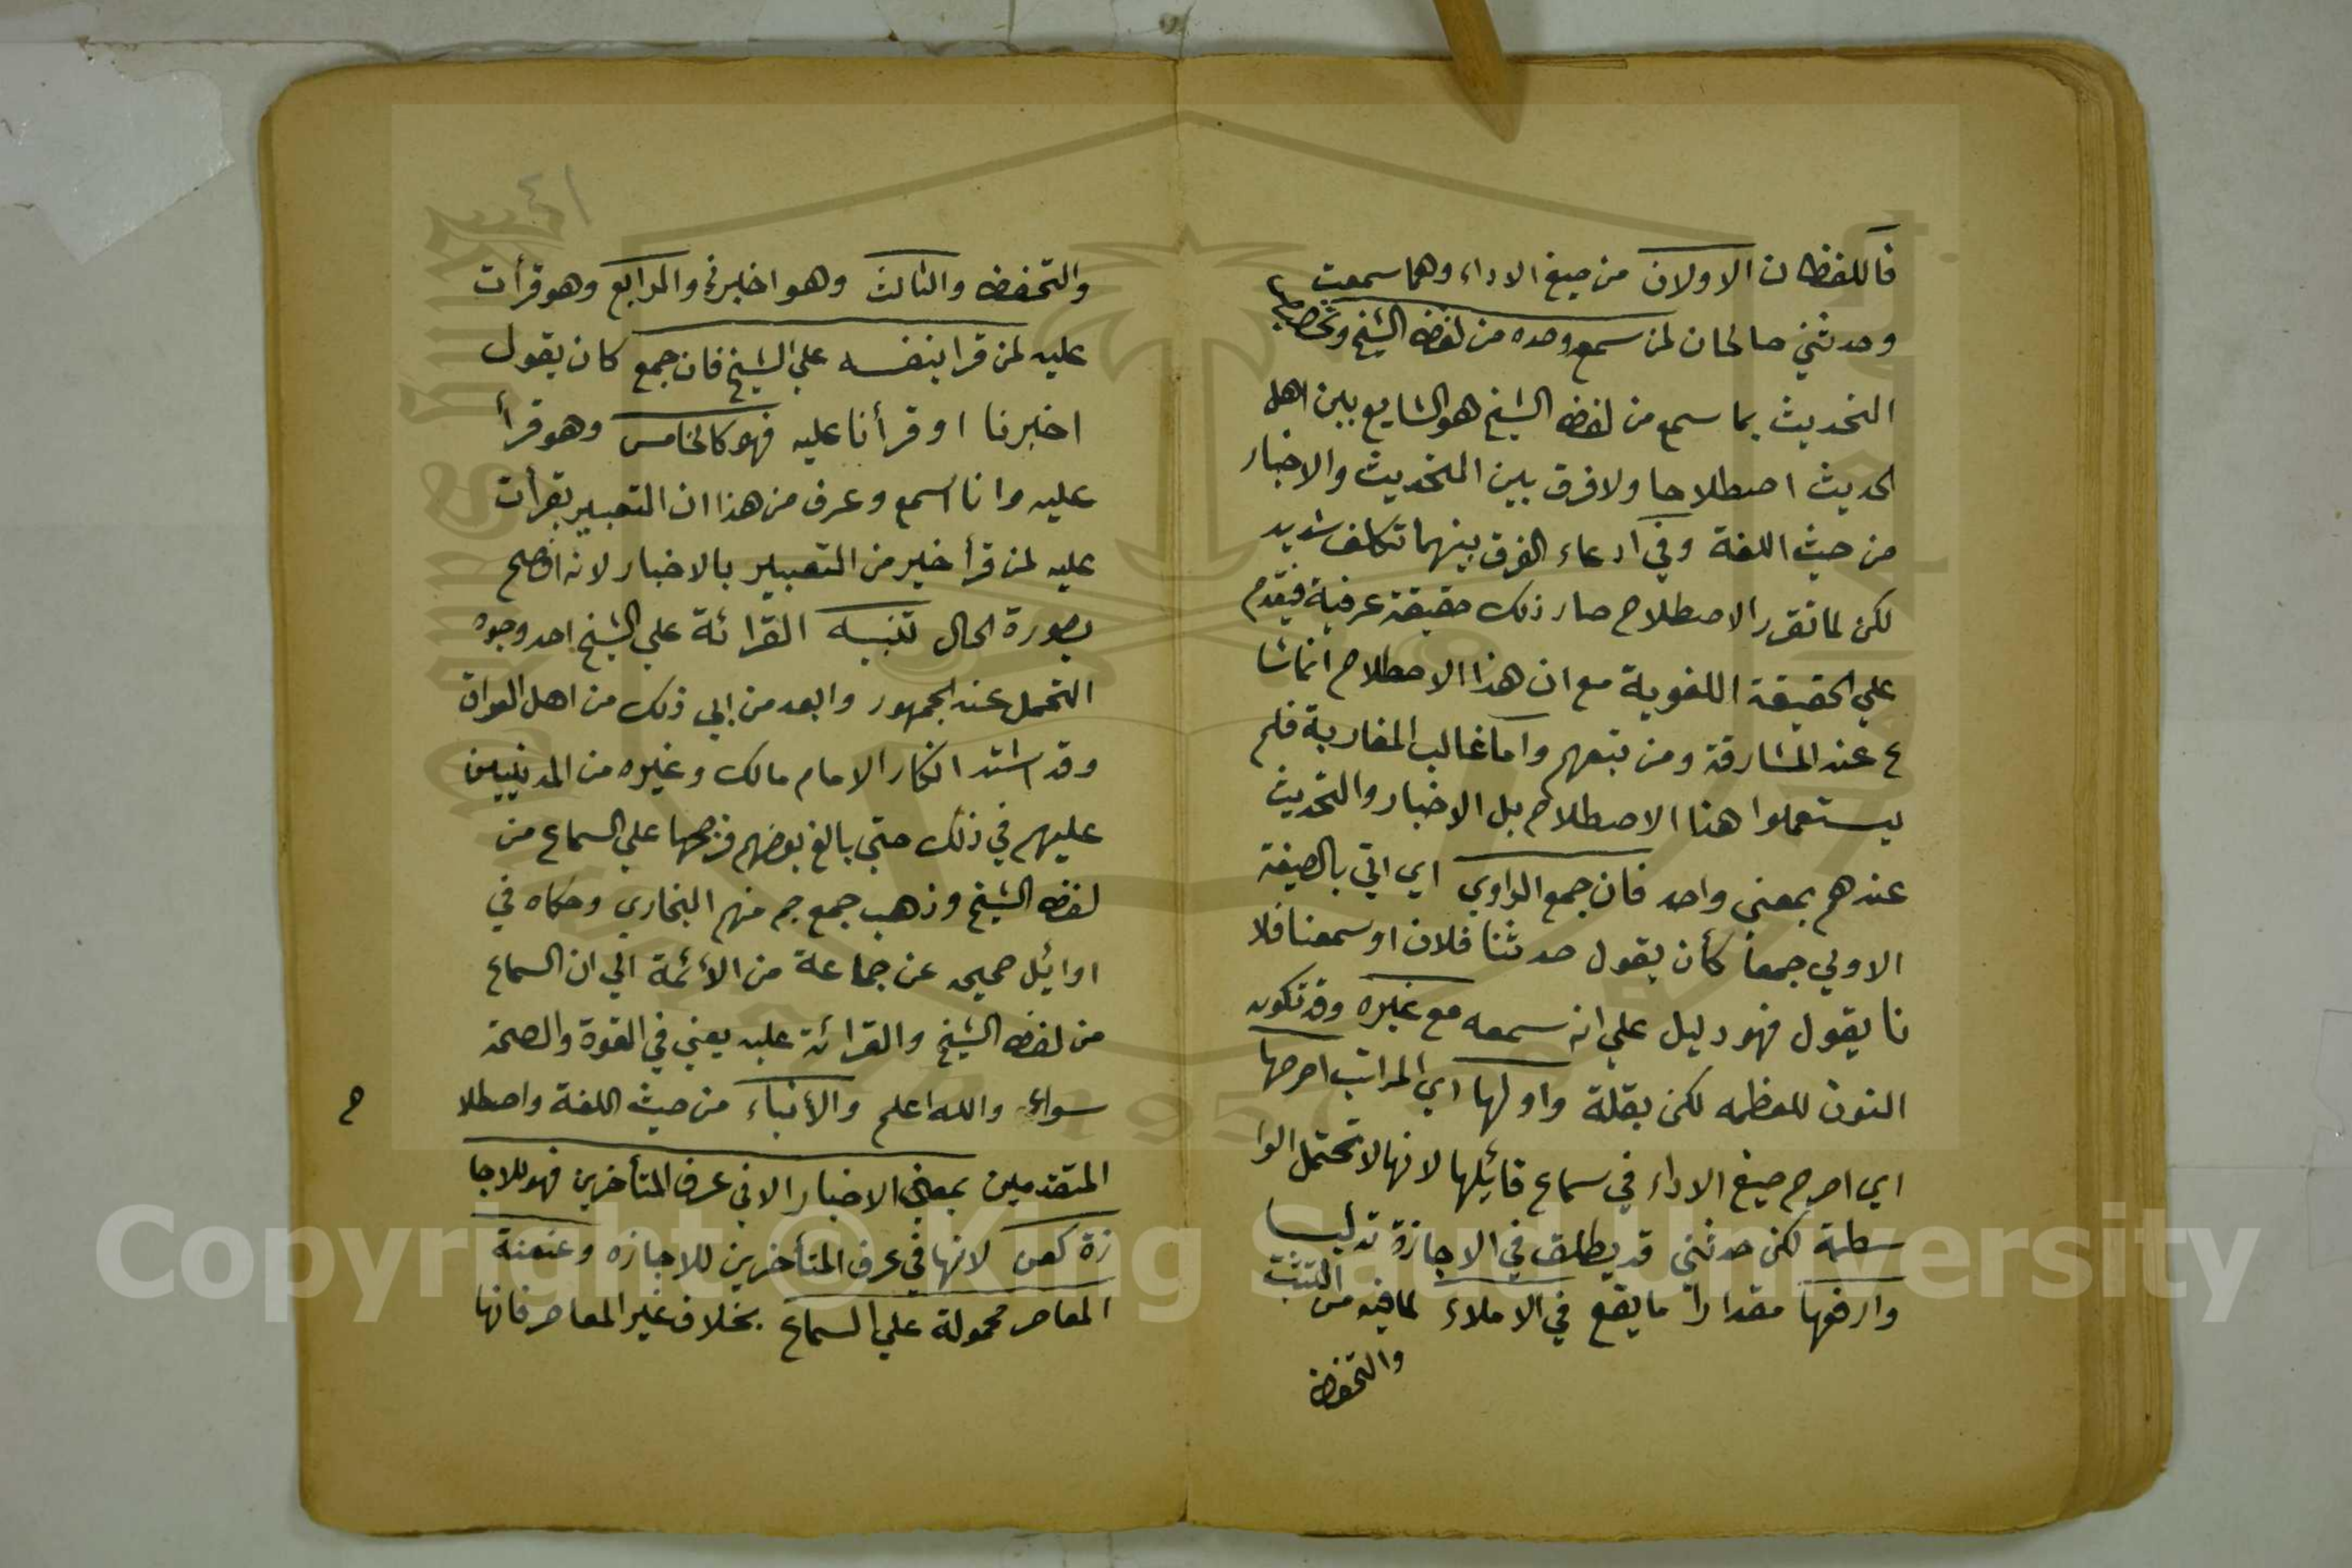 فاللفظان الاولان من صيغ الاداء وهما سمعت
وحدثني صالحان لمن سمع وحده من لفظ الشيخ وتخصيص
التحديث بما سمع من لفظ الشيخ هو الشايع بين اهل
الحديث اصطلاحا ولا فرق بين التحديث والاخبار
من حيث اللغة وفي ادعاء الفرق بينهما تكلف شديد
لكن لما تقرر الاصطلاح صار ذلك حقيقة عرفية فيقدم
علي الحقيقة اللغوية مع ان هذا الاصطلاح انما شا
ع عند المشارقة ومن تبعهم واما غالب المغاربة فلم
يستعملوا هذا الاصطلاح بل الاخبار والتحديث
عندهم بمعني واحد فان جمع الراوي اي اتي بالصيغة
الاولي جمعا كأن يقول حدثنا فلان او سمعنا فلا
نا يقول فهو دليل علي انه سمعه مع غيره وقد تكون
النون للعظمه لكن بقلة واولها اي المراتب اصرحها
اي اصرح صيغ الاداء في سماع قائلها لانها لا تحتمل الوا
سطة لكن حدثني قد يطلق في الاجازة تدليسا
وارفعها مقدارا ما يقع في الاملاء لما فيه من التثبت
والتحفظ
٤١
والتحفظ والثالث وهو اخبرني والرابع وهو قرأت
عليه لمن قرا بنفسه علي الشيخ فان جمع كان يقول
اخبرنا او قرأنا عليه فهو كالخامس وهو قرأ
عليه وانا اسمع وعرف من هذا ان التعبير بقرأت
عليه لمن قرأ خير من التعبير بالاخبار لانه افصح
بصورة الحال تنبيه القرائة علي الشيخ احد وجوه
التحمل عند الجمهور وابعد من ابي ذلك من اهل العراق
وقد اشتد انكار الامام مالك وغيره من المدنيين
عليهم في ذلك حتي بالغ بعضهم فرجحها علي السماع من
لفظ الشيخ وذهب جمع جم منهم البخاري وحكاه في
اوائل صحيحه عن جماعة من الأئمة الي ان السماع
من لفظ الشيخ والقرائة عليه يعني في القوة والصحة
سواء والله اعلم والأنباء من حيث اللغة واصطلا
ح
المتقدمين بمعني الاخبار الا في عرف المتأخرين فهو للاجا
زة كعن لانها في عرف المتأخرين للاجازه وعنعنة
المعاصر محمولة علي السماع بخلاف غير المعاصر فانها
Copyright © King Saud University
1957